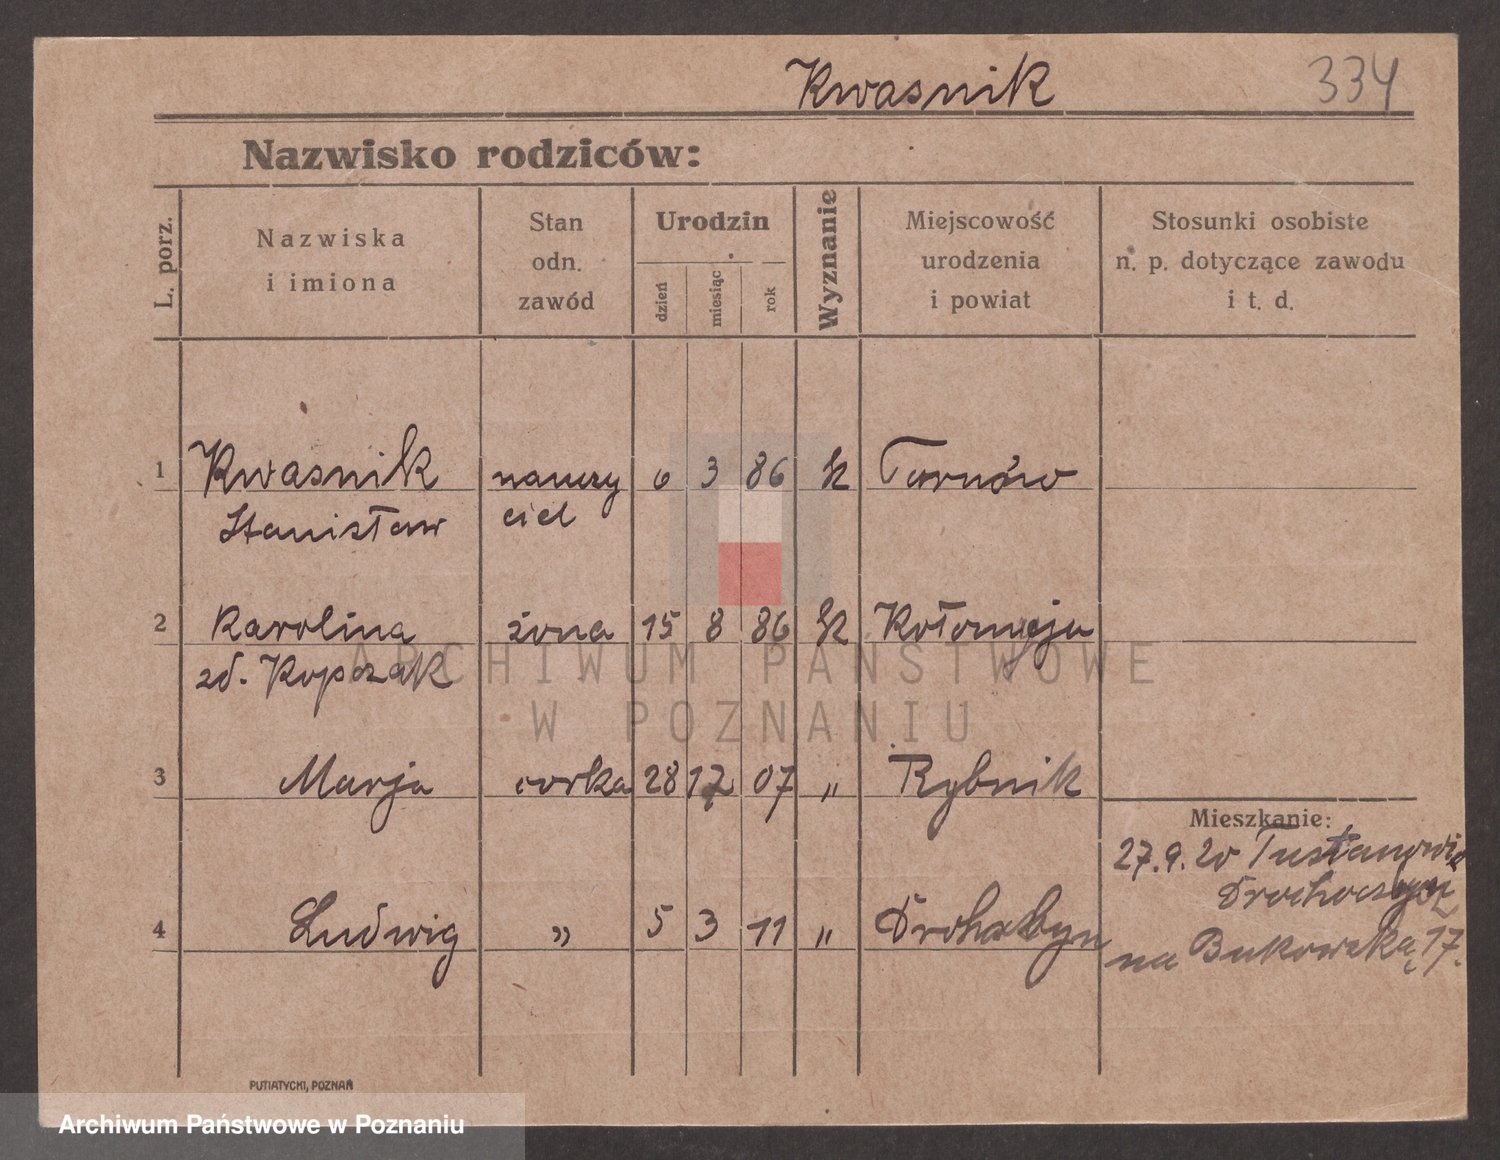 Kwasnik
334
Nazwisko rodziców:
L. porz.
Nazwiska
i imiona
Stan
odn.
zawód
Urodzin
dzień
miesiąc
rok
Wyznanie
Miejscowość
urodzenia
i powiat
Stosunki osobiste
n. p. dotyczące zawodu
i t. d.
1 Kwasnik nauczy 6 3 86 k Tarnów
Stanisław ciel
2 Karolina żona 15 8 86 k Kołomyja
zd. Kopczak
3 Marja corka 28 12 07 " Rybnik
Mieszkanie:
27.9.20 Tustanowic
4 Ludwig " 5 3 11 "
na Bukowską 17.
PUTIATYCKI, POZNAŃ
ARCHIWUM PAŃSTWOWE
W POZNANIU
Archiwum Państwowe w Poznaniu